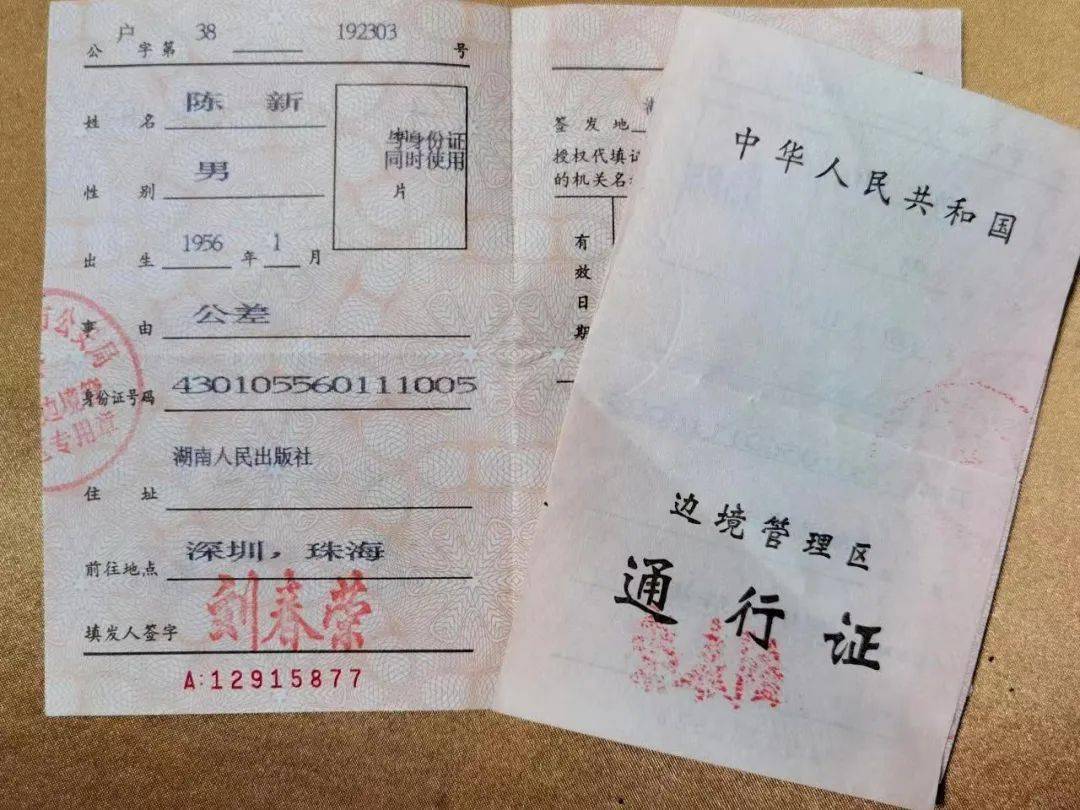 公户字第 38 192303 号
姓名 陈新
与身份证
同时使用
片
性别 男
出生 1956 年 1 月
事由 公差
身份证号码 430105560111005
湖南人民出版社
住址
前往地点 深圳，珠海
填发人签字 刘春荣
A:12915877
公安局
边境管
专用章
签发地
授权代填
的机关名:
有效日期
中华人民共和国
边境管理区
通行证